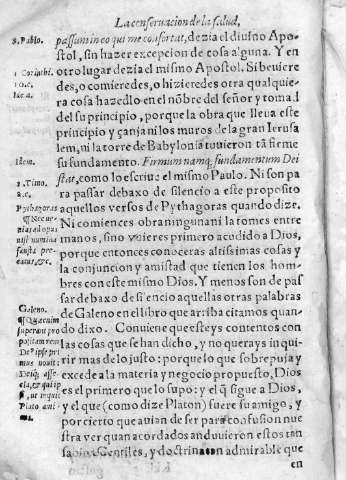 La conseruacion de la salud,
S. Pablo.
passum in eo qui me confortat, dezia el diuino Apo-
stol, sin hazer excepcion de cosa alguna. Y en
1. Corinthi.
otro lugar dezia el mismo Apostol. Si beuiere
10.c.
des, o comieredes, o hizieredes otra qualquie-
ra cosa hazedlo en el nõbre del señor y
del su principio, porque la obra que lleua este
principio y çanja ni los muros de la gran Ierusa
lem, ni la torre de Babylonia tuuieron tã firme
Idem.
su fundamento. Firmum namq; fundamentum Dei
2. Timo.
stat, como lo escriue el mismo Paulo. Ni son pa
2.c.
ra passar debaxo de silencio a este proposito
Pythagoras
aquellos versos de Pythagoras quando dize.
Ni comiences obra ninguna ni la tomes entre
manos, sino vuieres primero acudido a Dios,
nisi numina
porque entonces conoceras altissimas cosas y
fausta pre-
la conjuncion y amistad que tienen los hom-
catus, &c.
bres con este mismo Dios. Y menos son de pas
sar debaxo de silencio aquellas otras palabras
Galeno.
de Galeno en el libro que arriba citamos quan-
do dixo. Conuiene que esteys contentos con
superant pro
las cosas que se han dicho, y no querays inqui-
positam rem
rir mas de lo justo: porque lo que sobrepuja y
excede a la materia y negocio propuesto, Dios
es el primero que lo supo: y el q̃ sigue a Dios,
y el que (como dize Platon) fuere su amigo, y
Plato ani-
por cierto que auian de ser para confusion nue
stra ver quan acordados anduuieron estos tan
sabios Gentiles, y doctrina tan admirable que
en